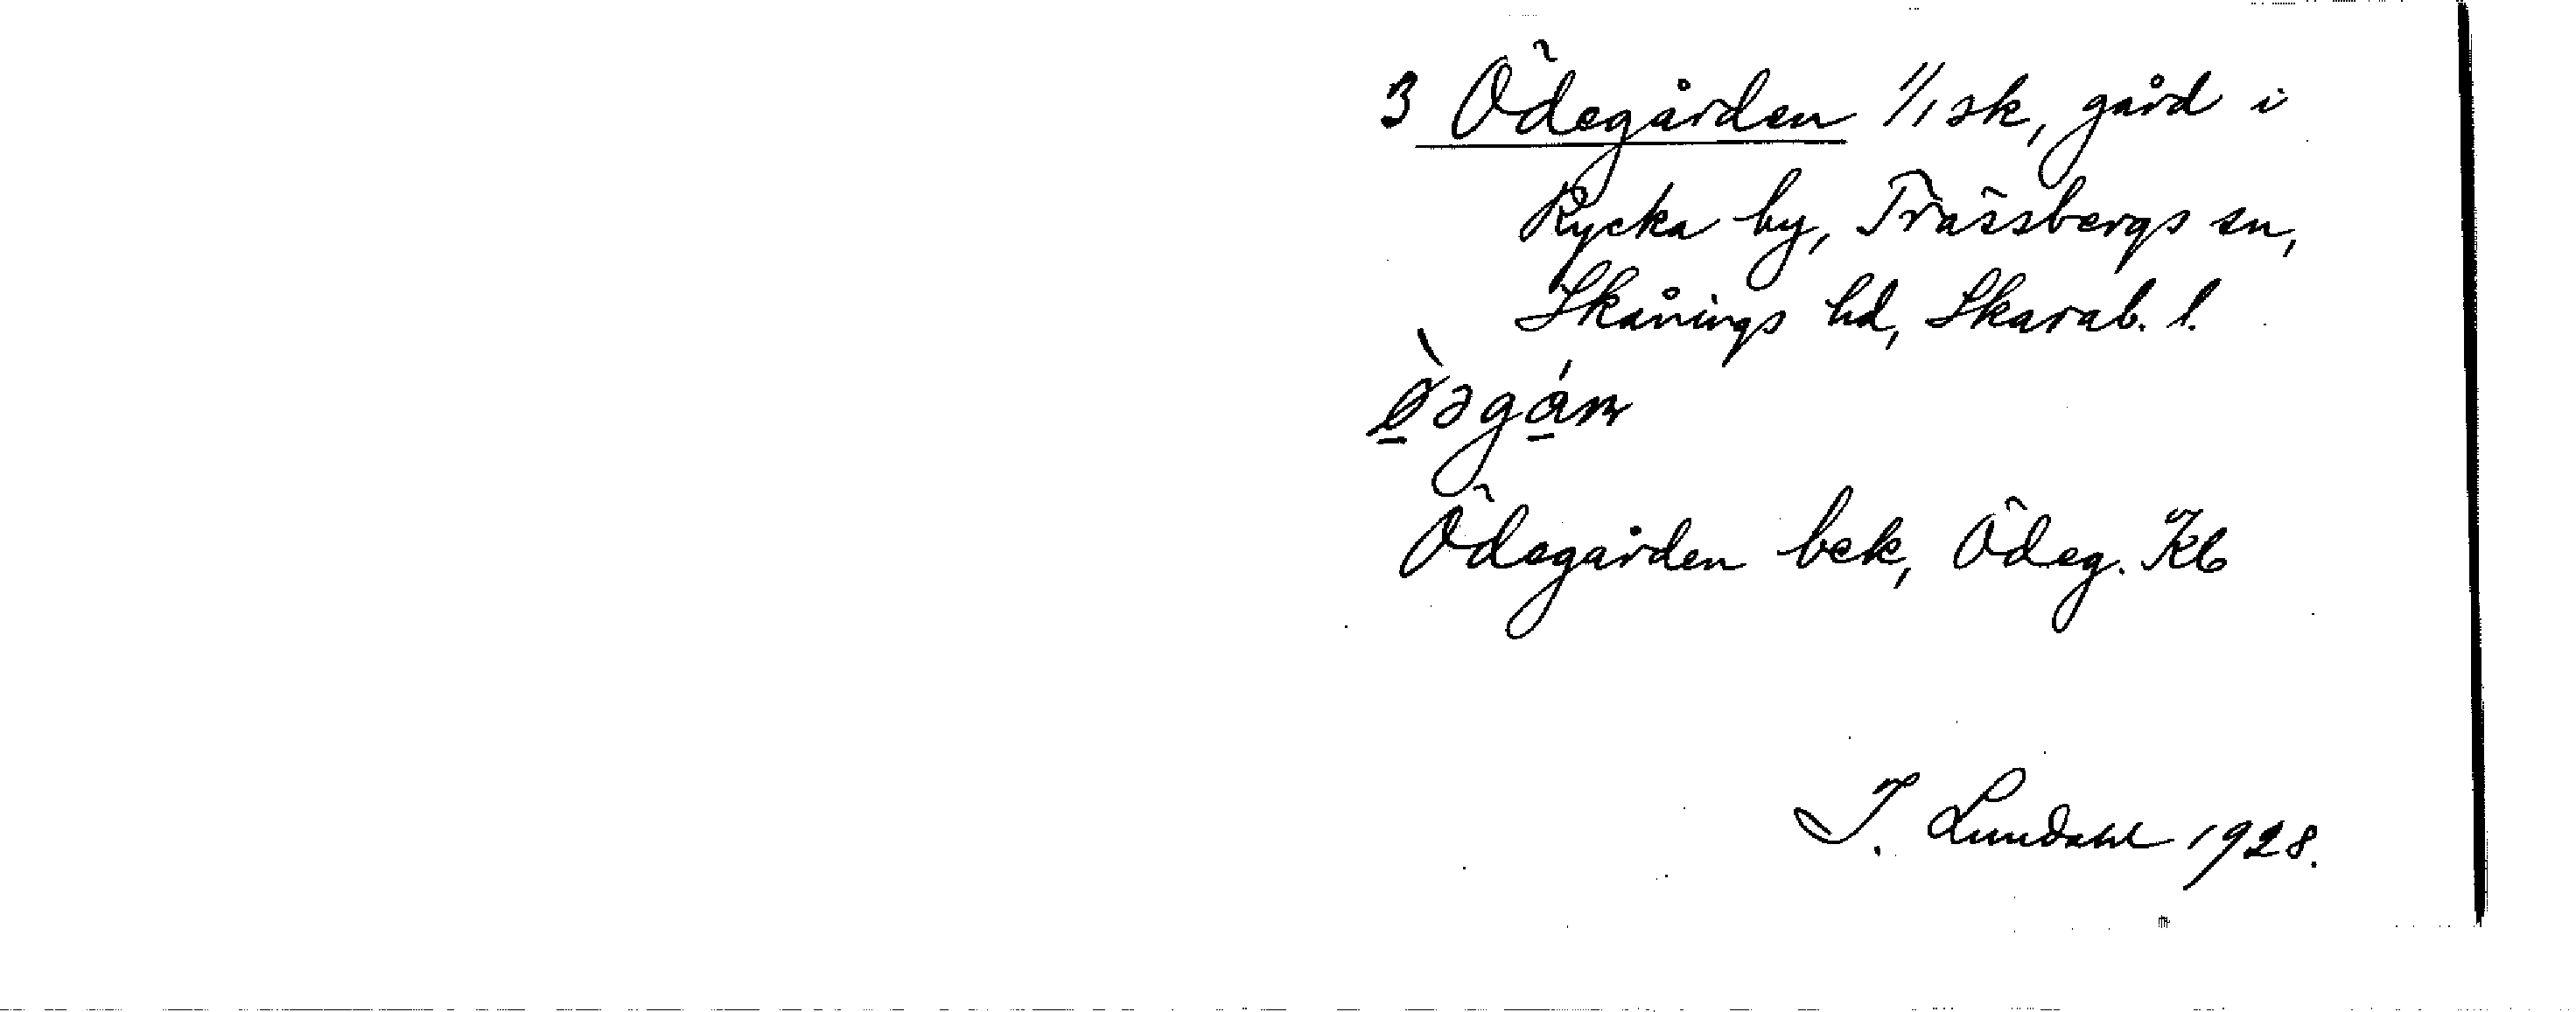 3 Ödegården 1/1 sk, gård i
Rycka by, Trässbergs sn,
Skånings hd, Skarab. l.
Ödegården bek, Ödeg. Kb
I. Lundahl 1928.